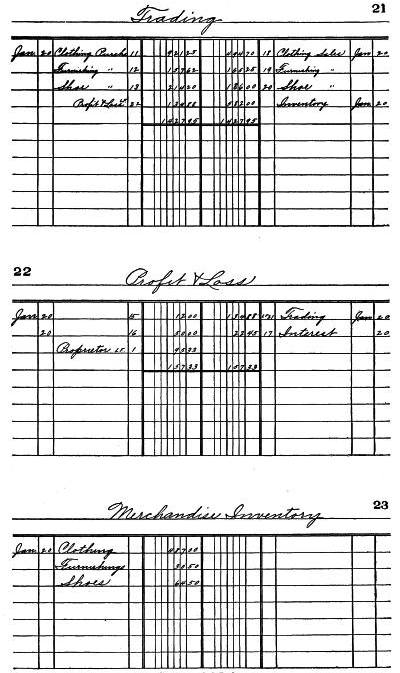 21
Trading
Jan 20 Clothing Purchs 11 921 25 494 70 18 Clothing Sales Jan 20
Furnishing " 12 157 62 165 25 19 Furnishing "
Shoe " 13 214 20 186 00 20 Shoe "
Profit & Loss 22 134 88 582 00 Inventory Jan 20
1427 95 1427 95
22
Profit & Loss
Jan 20 15 12 00 134 88 Trading Jan 20
20 16 50 00 22 45 17 Interest 20
Proprietor 1 95 33
157 33 157 33
23
Merchandise Inventory
Jan 20 Clothing 487 00
Furnishings 30 50
Shoes 64 50